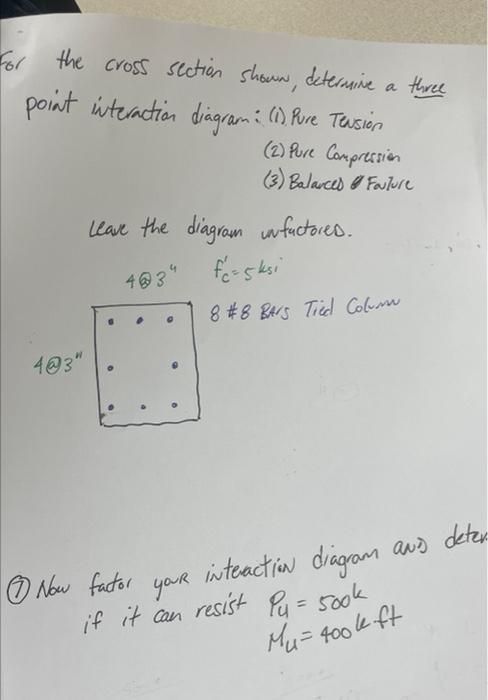 For the cross section shown, determine a three
point interaction diagram: (1) Pure Tension
(2) Pure Compression
(3) Balanced Failure
Leave the diagram unfactored.
4@3" f'c = 5 ksi
8 #8 Bars Tied Column
4@3"
⑦ Now factor your interaction diagram and deter
if it can resist Pu = 500k
Mu = 400 k ft